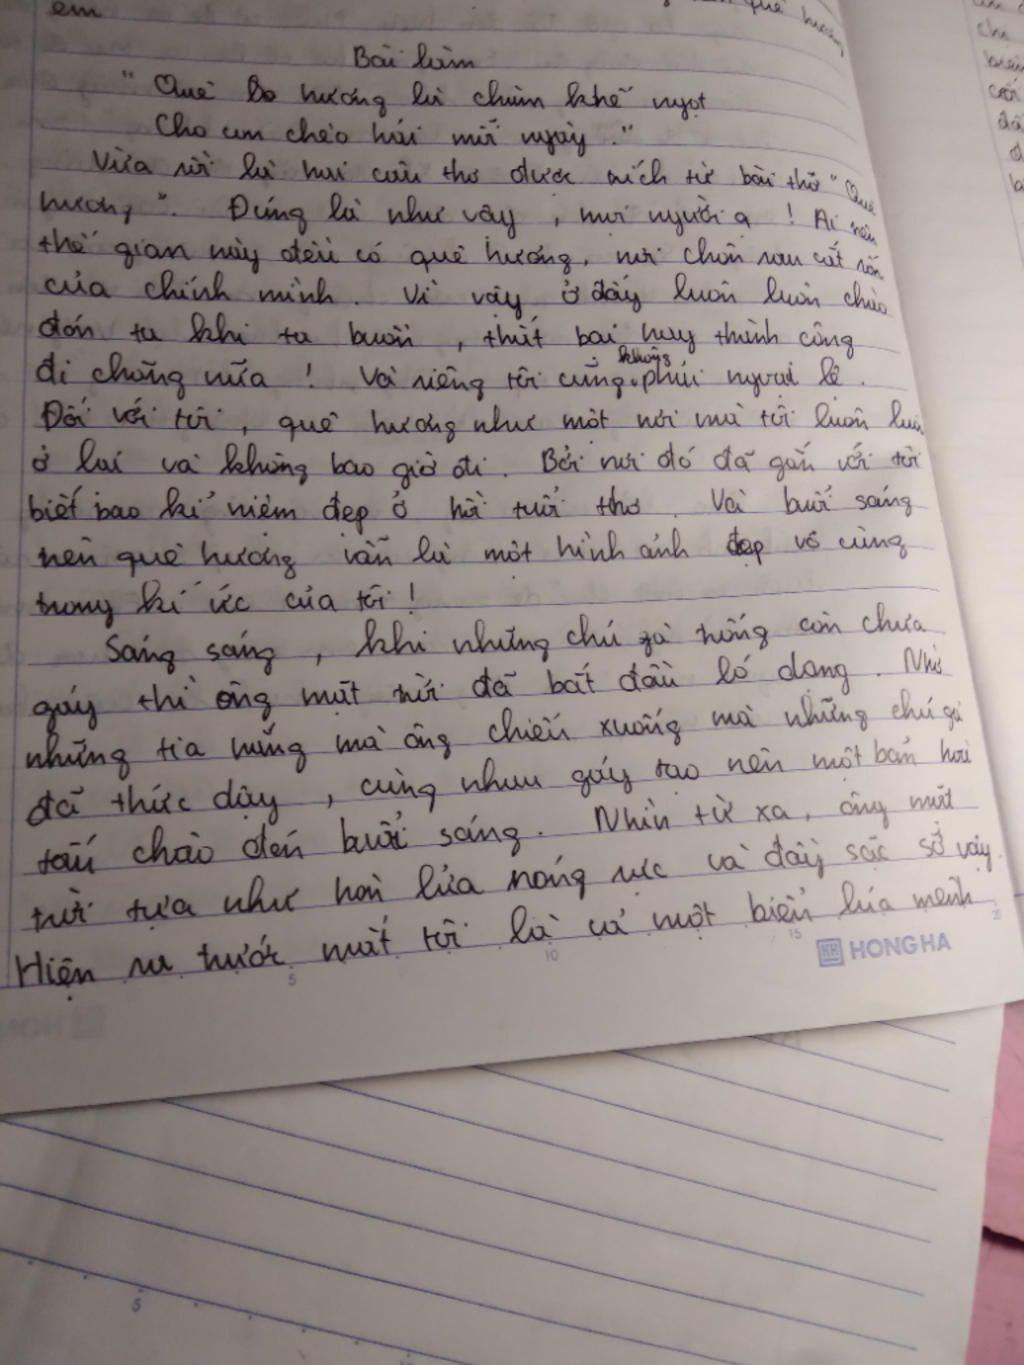 em
quê hương
Bài làm
" Quê hương là chùm khế ngọt
Cho em chèo hái mỗi ngày."
Vừa rồi là hai câu thơ được trích từ bài thơ "Quê
hương". Đúng là như vậy, mọi người ạ! Ai trên
thế gian này đều có quê hương, nơi chôn rau cắt rốn
của chính mình. Vì vậy ở đây luôn luôn chào
đón ta khi ta buồn, thất bại hay thành công
đi chăng nữa! Và riêng tôi cũng không phải ngoại lệ.
Đối với tôi, quê hương như một nơi mà tôi luôn luôn
ở lại và không bao giờ đi. Bởi nơi đó đã gắn với tôi
biết bao kỉ niệm đẹp ở hồi tuổi thơ. Và buổi sáng
nên quê hương vẫn là một hình ảnh đẹp vô cùng
trong kí ức của tôi!
Sáng sáng, khi những chú gà trống còn chưa
gáy thì ông mặt trời đã bắt đầu ló dạng. Nhờ
những tia nắng mà ông chiếu xuống mà những chú gà
đã thức dậy, cùng nhau gáy tạo nên một bản hoà
tấu chào đến buổi sáng. Nhìn từ xa, ông mặt
trời tựa như hòn lửa nóng rực và đầy sặc sỡ vậy.
Hiện ra trước mắt tôi là cả một biển lúa mênh
5 10 15 20
HONG HA
5